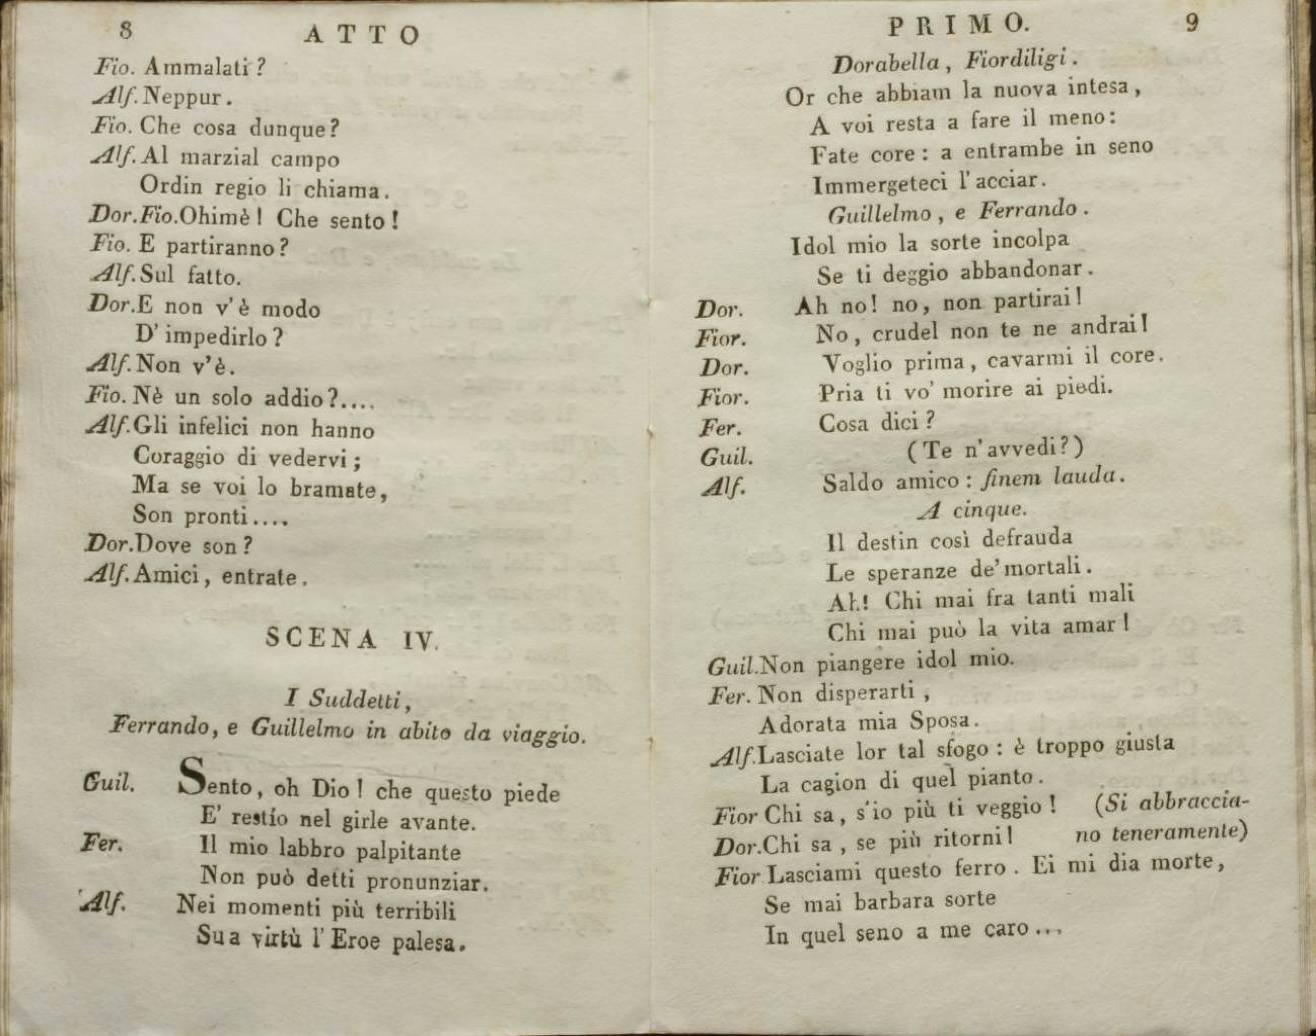 8 ATTO
Fio. Ammalati?
Alf. Neppur.
Fio. Che cosa dunque?
Alf. Al marzial campo
Ordin regio li chiama.
Dor. Fio. Ohimè! Che sento!
Fio. E partiranno?
Alf. Sul fatto.
Dor. E non v'è modo
D'impedirlo?
Alf. Non v'è.
Fio. Nè un solo addio?....
Alf. Gli infelici non hanno
Coraggio di vedervi;
Ma se voi lo bramate,
Son pronti....
Dor. Dove son?
Alf. Amici, entrate.
SCENA IV.
I Suddetti,
Ferrando, e Guillelmo in abito da viaggio.
Guil. Sento, oh Dio! che questo piede
E' restío nel girle avante.
Fer. Il mio labbro palpitante
Non può detti pronunziar.
Alf. Nei momenti più terribili
Sua virtù l'Eroe palesa.
PRIMO. 9
Dorabella, Fiordiligi.
Or che abbiam la nuova intesa,
A voi resta a fare il meno:
Fate core: a entrambe in seno
Immergeteci l'acciar.
Guillelmo, e Ferrando.
Idol mio la sorte incolpa
Se ti deggio abbandonar.
Dor. Ah no! no, non partirai!
Fior. No, crudel non te ne andrai!
Dor. Voglio prima, cavarmi il core.
Fior. Pria ti vo' morire ai piedi.
Fer. Cosa dici?
Guil. (Te n'avvedi?)
Alf. Saldo amico: finem lauda.
A cinque.
Il destin così defrauda
Le speranze de'mortali.
Ah! Chi mai fra tanti mali
Chi mai può la vita amar!
Guil. Non piangere idol mio.
Fer. Non disperarti,
Adorata mia Sposa.
Alf. Lasciate lor tal sfogo: è troppo giusta
La cagion di quel pianto.
Fior Chi sa, s'io più ti veggio! (Si abbraccia-
Dor. Chi sa, se più ritorni! no teneramente)
Fior Lasciami questo ferro. Ei mi dia morte,
Se mai barbara sorte
In quel seno a me caro...